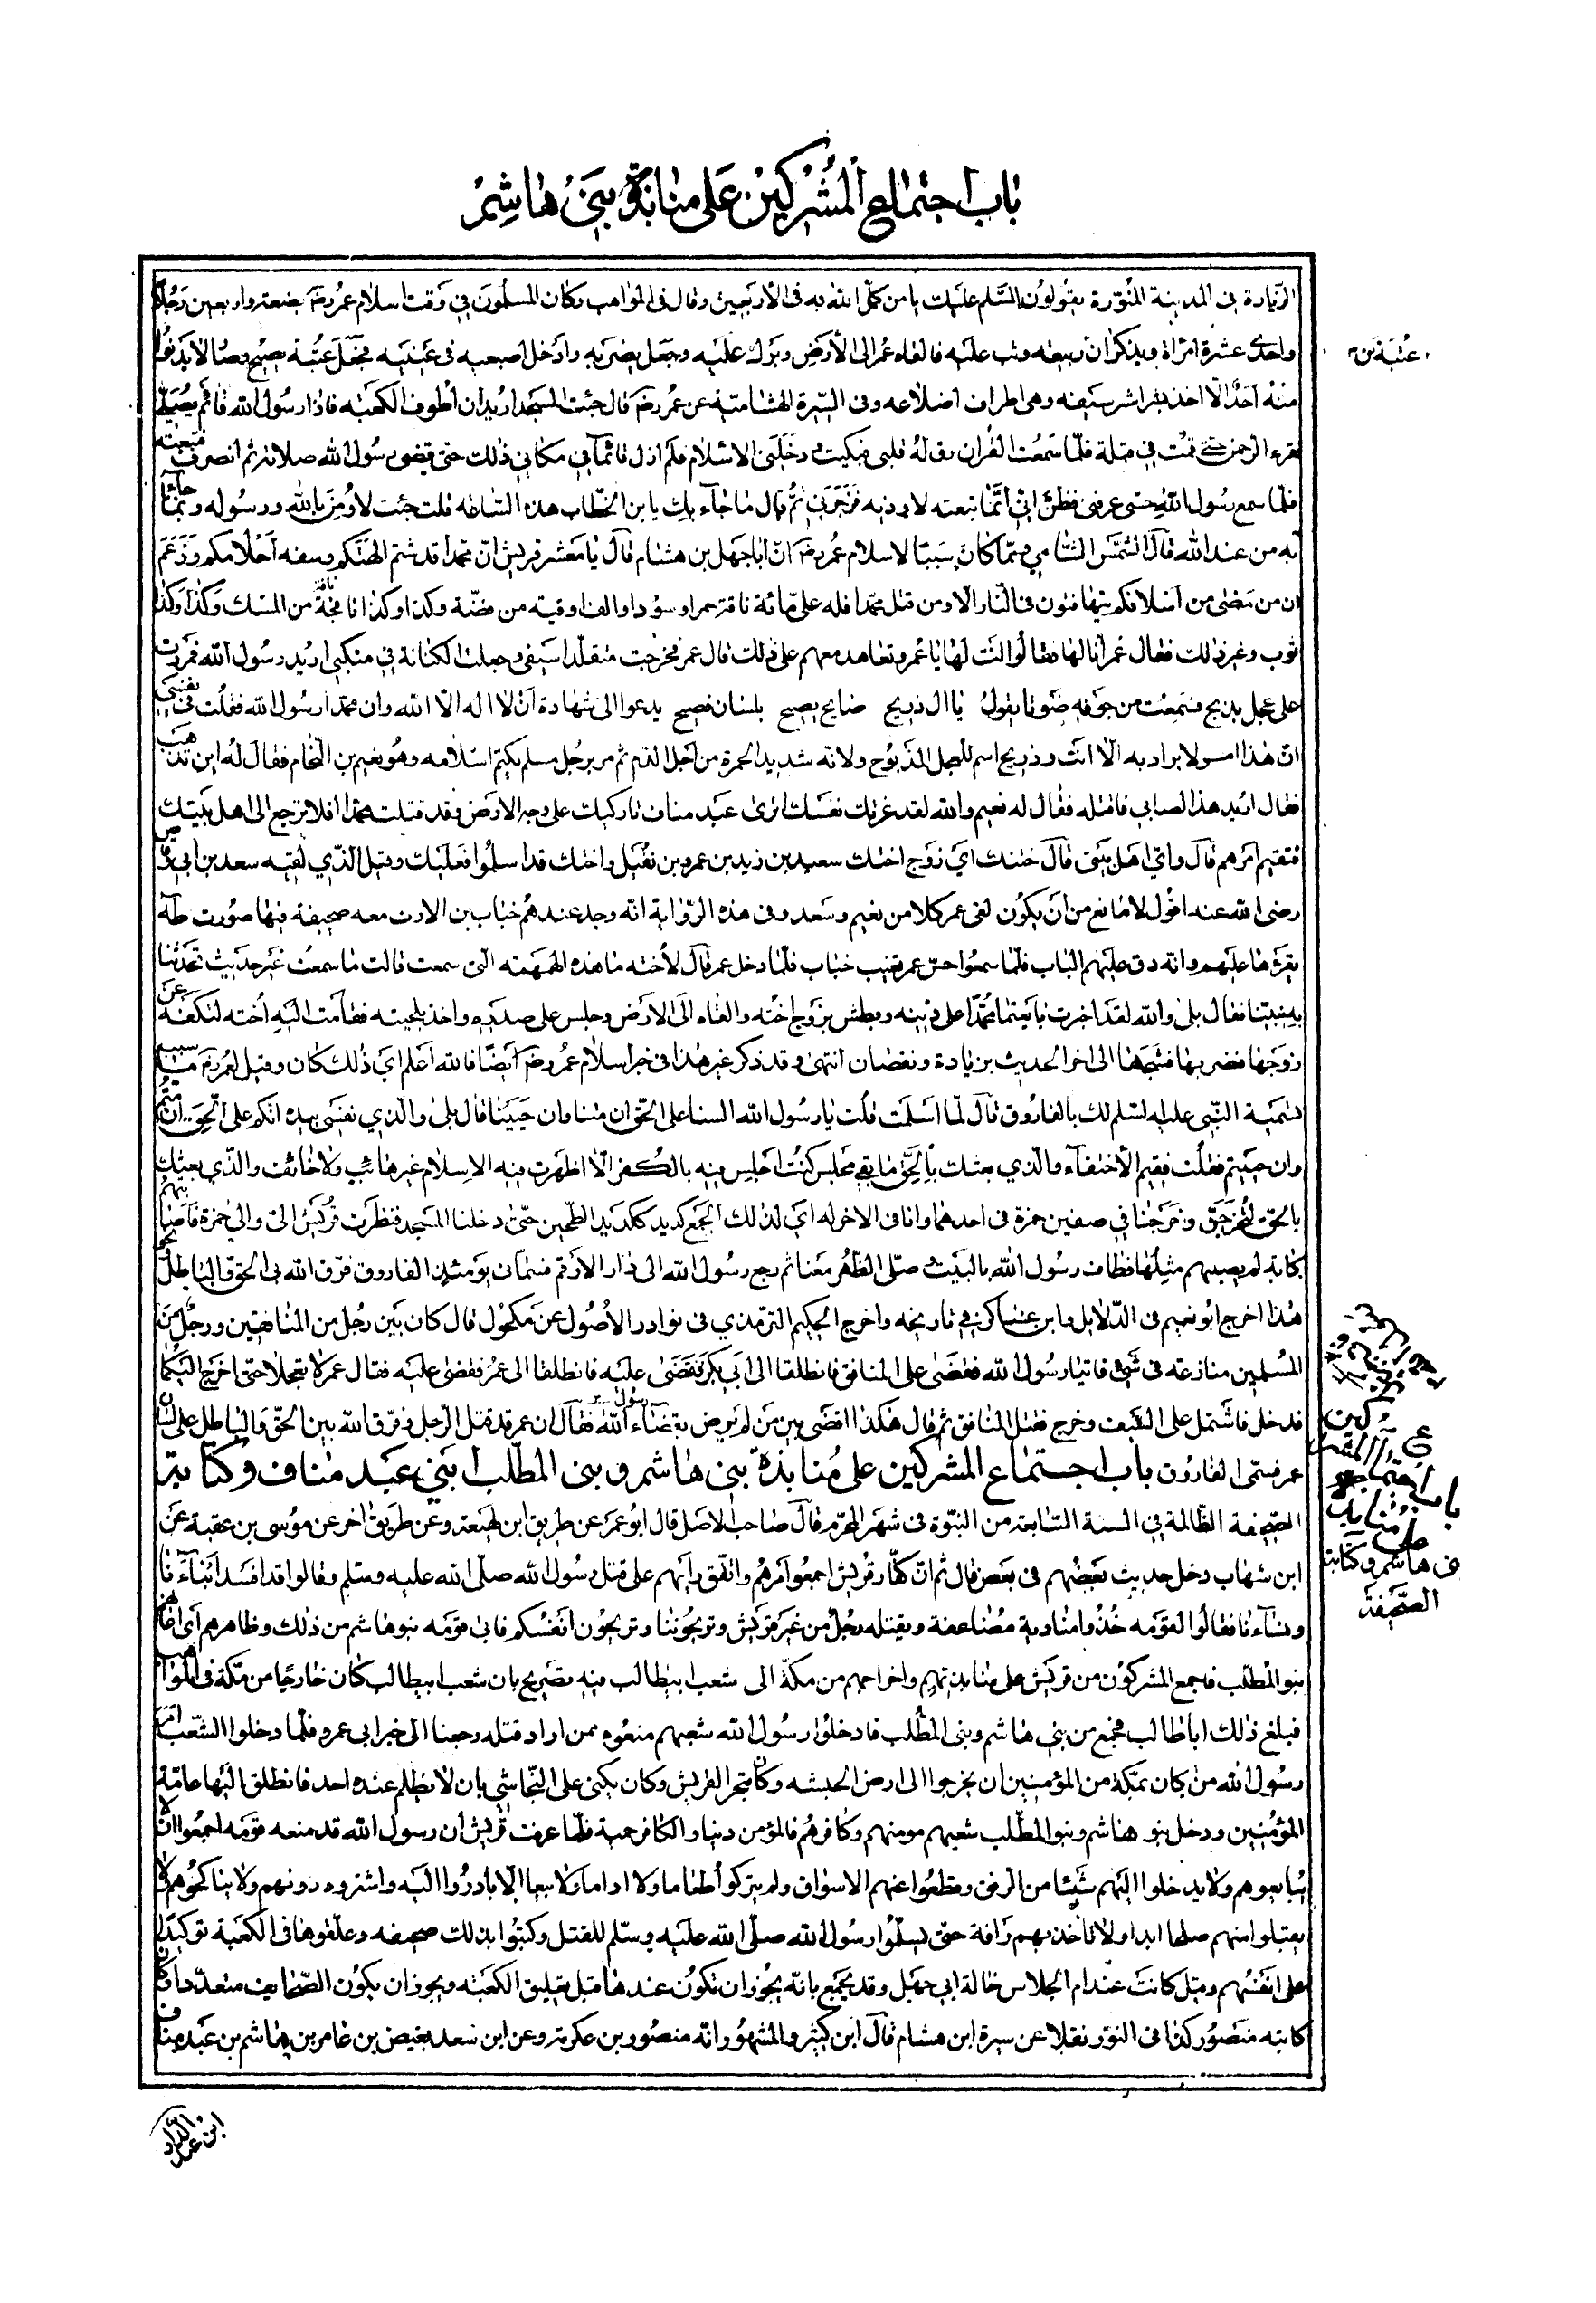 باب اجتماع المشركين على منابذة بني هاشم
الزيارة في المدينة المنورة يقولون السلم عليك يا من كمل الله به في الأربعين وقال في المواهب وكان المسلمون في وقت اسلام عمر رضه بضعة واربعين رجلا
واحدى عشرة امراة ويذكر ان ربيعه وثب عليه فالقاه عمر الى الأرض وبرك عليه وجعل يضربه وادخل اصبعيه في عينيه فجعل عتبة يصيح وصار لا يدنو
عتبة بن
منه احد الا اخذ بشراشر سيفه وهى اطراف اضلاعه وفى السيرة الهشامية عن عمر رضه قال جئت المسجد اريد ان أطوف الكعبه فاذا رسول الله قائم يصلي
فقرء الرحمن حتى قمت في قبلة فلما سمعت القران رق له قلبى فبكيت ودخلنى الاسلام فلم ازل قائما في مكاني ذلك حتى قضى رسول الله صلاته ثم انصرف فتبعته
فلما سمع رسول الله حسى عرفنى فظن اني انما تبعته لاوذيه فزجرنى ثم قال ما جاء بك يا بن الخطاب هذه الساعه قلت جئت لاومن بالله ورسوله وبما جاء
به من عند الله قال الشمس الشامي ومما كان سببا لاسلام عمر رضه ان اباجهل بن هشام قال يا معشر قريش ان محمدا قد شتم الهتكم وسفه احلامكم وزعم
ان من مضى من اسلافكم يتهافتون في النار الا ومن قتل محمدا فله على مائة ناقة حمرا وسودا والف اوقية من فضة وكذا وكذا نافجة من المسك وكذا وكذا
ثوب وغير ذلك فقال عمر أنا لها فقالوا انت لها يا عمر وتعاهد معهم على ذلك قال عمر فخرجت متقلدا سيفى وجعلت الكنانة في منكبي اريد رسول الله فمررت
على عجل يذبح فسمعت من جوفه صوتا يقول يا ال ذريح صايح يصيح بلسان فصيح يدعوا الى شهادة ان لا اله الا الله وان محمدا رسول الله فقلت في نفسي
ان هذا امر لا يراد به الا انت وذريح اسم للعجل المذبوح ولانه شديد الحمرة من اجل الدم ثم مر برجل مسلم يكتم اسلامه وهو نعيم بن النحام فقال له اين تذهب
فقال اريد هذا الصابي فاقتله فقال له نعيم والله لقد غرتك نفسك اترى عبد مناف تاركيك على وجه الارض وقد قتلت محمدا افلا ترجع الى اهل بيتك
فتقيم امرهم قال واي اهل بيتى قال ختنك اي زوج اختك سعيد بن زيد بن عمرو بن نفيل واختك قد اسلموا فعليك وقيل الذي لقيه سعد بن ابي وقاص
رضى الله عنه اقول لا مانع من ان يكون لقى عمر كلا من نعيم وسعد وفى هذه الرواية انه وجد عندهم خباب بن الارت معه صحيفة فيها صورت طه
يقرئها عليهم وانه دق عليهم الباب فلما سمعوا حس عمر تغيب خباب فلما دخل عمر قال لاخته ما هذه الهمهمه التى سمعت قالت ما سمعت غير حديث تحدثنا
به بيننا فقال بلى والله لقد اخبرت تابعتما محمدا على دينه وبطش بزوج اخته والقاه الى الارض وجلس على صدره واخذ بلحيته فقامت اليه اخته لتكفه عن
زوجها فضربها فشجها الى اخر الحديث بزيادة ونقصان انتهى وقد ذكر غير هذا في خبر اسلام عمر رضه أيضا فالله اعلم اي ذلك كان وقيل لعمر رضه ما سبب
تسمية النبي عليه السلم لك بالفاروق قال لما اسلمت قلت يا رسول الله السنا على الحق ان متنا وان حيينا قال بلى والذي نفسى بيده انكم على الحق ان متم
وان حييتم فقلت ففيم الاختفاء والذي بعثك بالحق ما بقي مجلس كنت اجلس فيه بالكفر الا اظهرت فيه الاسلام غير هائب ولا خائف والذي بعثك
بالحق لنخرجن وخرجنا في صفين حمزة في احدهما وانا في الاخر له اي لذلك الجمع كديد ككديد الطحين حتى دخلنا المسجد فنظرت قريش الي والي حمزة فاصابتهم
كابة لم يصبهم مثلها فطاف رسول الله بالبيت وصلى الظهر معنا ثم رجع رسول الله الى دار الارقم فسماني يومئذ الفاروق فرق الله بي الحق والباطل
هذا اخرج ابو نعيم في الدلايل وابن عساكر في تاريخه واخرج الحكيم الترمذي في نوادر الأصول عن مكحول قال كان بين رجل من المنافقين ورجل من
المسلمين منازعه في شئ فاتيا رسول الله فقضى على المنافق فانطلقا الى ابي بكر فقضى عليه فانطلقا الى عمر فقضى عليه فقال عمر لا تعجلا حتى اخرج اليكما
فدخل فاشتمل على السيف وخرج فقتل المنافق ثم قال هكذا اقضى بين من لم يرض بقضاء رسول الله فقال ان عمر قد قتل الرجل وفرق الله بين الحق والباطل على لسان
عمر فسمى الفاروق باب اجتماع المشركين على منابذة بني هاشم وبنى المطلب ابني عبد مناف وكتابة
باب اجتماع المشركين
على منابذة
بني هاشم وكتابة
الصحيفة
الصحيفة الظالمة في السنة السابعة من النبوة في شهر المحرم قال صاحب الاصل قال ابو عمر عن طريق ابن لهيعة وعن طريق اخر عن موسى بن عقبة عن
ابن شهاب دخل حديث بعضهم في بعض قال ثم ان كفار قريش اجمعوا امرهم واتفق رأيهم على قتل رسول الله صلى الله عليه وسلم وقالوا قد افسد ابناءنا
ونساءنا فقالوا لقومه خذوا منا دية مضاعفة ويقتله رجل من غير قريش وتريحوننا وتريحون انفسكم فابى قومه بنو هاشم من ذلك وظاهرهم اى اعانهم
بنو المطلب فاجمع المشركون من قريش على منابذتهم واخراجهم من مكة الى شعب ابيطالب فيه تصريح بان شعب ابيطالب كان خارجا من مكة في المواهب
فبلغ ذلك اباطالب فجمع من بني هاشم وبنى المطلب فادخلوا رسول الله شعبهم منعوه ممن اراد قتله رجعنا الى خبر ابي عمر فلما دخلوا الشعب امر
رسول الله من كان بمكة من المؤمنين ان يخرجوا الى ارض الحبشه وكان متجرا لقريش وكان يثنى على النجاشي بان لا يظلم عنده احد فانطلق اليها عامة
المؤمنين ودخل بنو هاشم وبنو المطلب شعبهم مومنهم وكافرهم فالمؤمن دينا والكافر حمية فلما عرفت قريش ان رسول الله قد منعه قومه اجمعوا ان لا
يبايعوهم ولا يدخلوا اليهم شيئا من الرفق وقطعوا عنهم الاسواق ولم يتركوا طعاما ولا اداما ولا بيعا الا بادروا اليه واشتروه دونهم ولا يناكحوهم ولا
يقبلوا منهم صلحا ابدا ولا تاخذ بهم رافة حتى يسلموا رسول الله صلى الله عليه وسلم للقتل وكتبوا بذلك صحيفه وعلقوها في الكعبة توكيدا
على انفسهم وقيل كانت عند ام الجلاس خالة ابي جهل وقد يجمع بانه يجوز ان تكون عندها قبل تعليق الكعبه ويجوز ان يكون الصحايف متعددا وكان
كاتبه منصور كذا في النور نقلا عن سيرة ابن هشام قال ابن كثير والمشهور انه منصور بن عكرمة وعن ابن سعد بغيض بن عامر بن هاشم بن عبد مناف
ابن عبد الدار